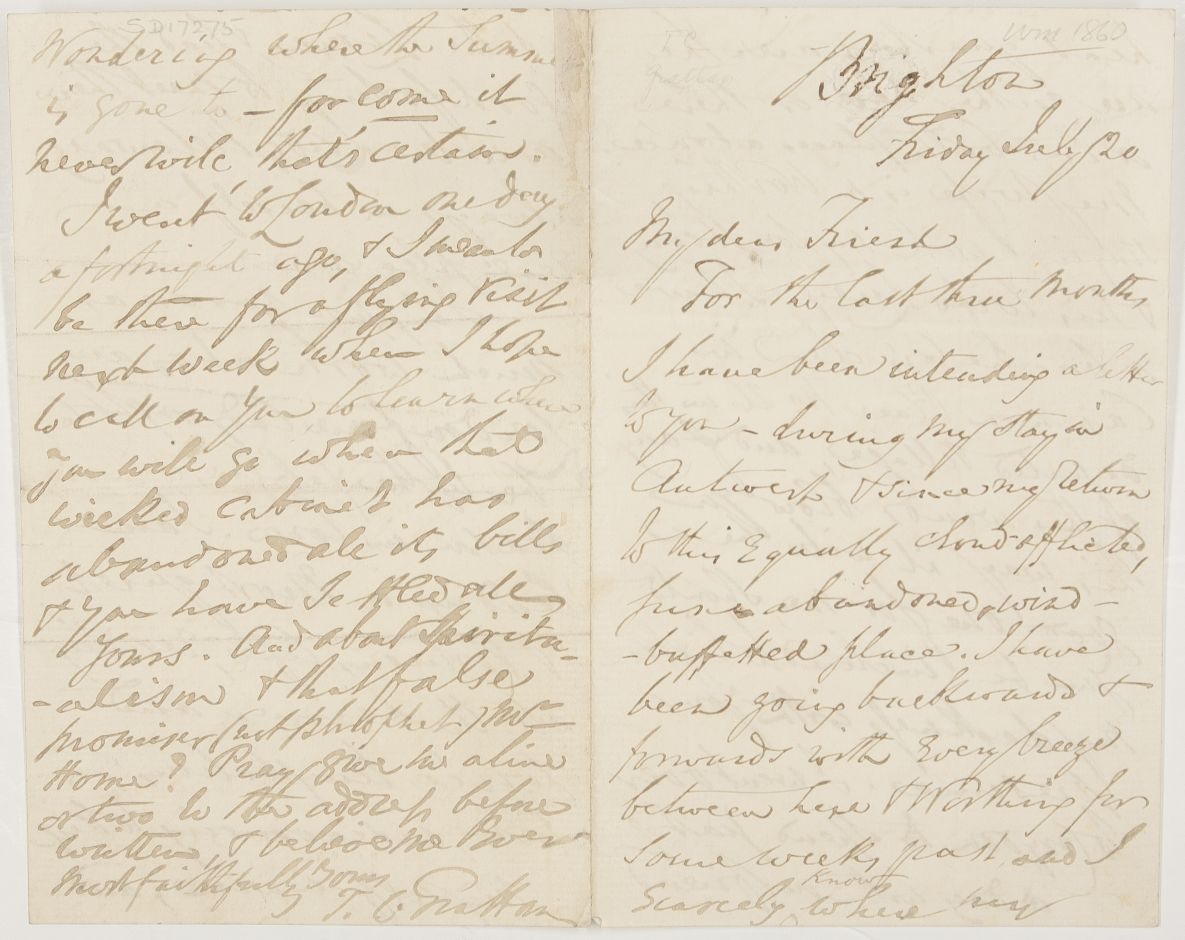 Wm 1860
Brighton
Friday July 20
My dear Friend
For the last three months
I have been intending a letter
to you - during my stay in
Antwerp & since my return
to this Equally cloud-afflicted,
sun-abandoned, wind-
-buffetted place. I have
been going backwards &
forwards with Every breeze
between here & Worthing for
some weeks past, and I
scarcely know where my
SD17275
Wondering where the Summer
is gone to - for come it
never will that's certain.
I went to London one day
a fortnight ago, & I mean to
be there for a flying visit
next week when I hope
to call on you to learn where
you will go when that
wicked cabinet has
abandoned all its bills
& you have settled all
yours. And about Spiritu-
-alism & that false
promiser (not prophet) Mr
Home? Pray give me a line
or two to the address before
written, & believe me Ever
Most faithfully Yours
T. C. Grattan